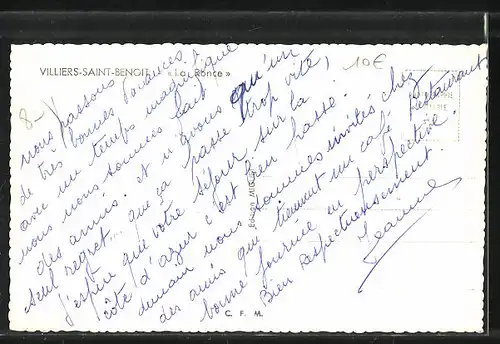 VILLIERS-SAINT-BENOIT « La Ronce »
10€
8-
nous passons
de très bonnes vacances
avec un temps magnifique
nous nous sommes fait
des amis. et n'avons qu'un
seul regret... que ça passe trop vite,
j'espère que votre séjour sur la
côte d'azur c'est bien passé.
demain nous sommes invités chez
des amis qui tiennent un café Restaurant
bonne journée en perspective.
Bien Respectueusement.
Jeannine
C. F. M.